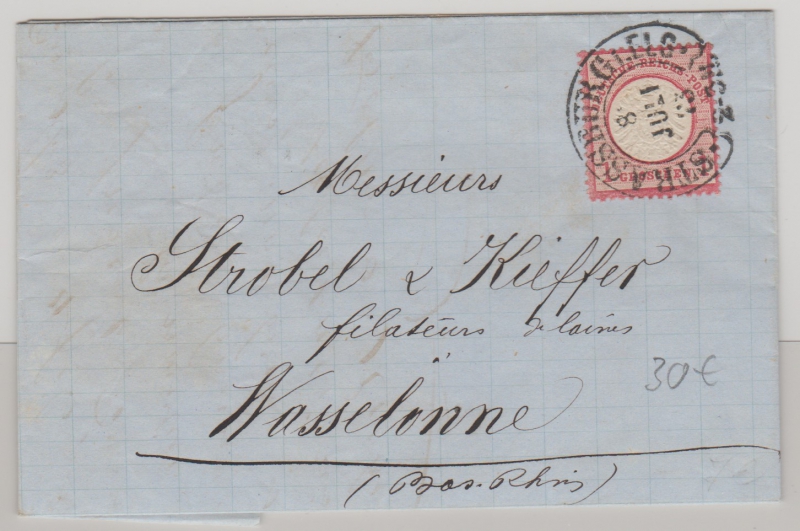 STRASSBURG i. ELS.
DEUTSCHE REICHS-POST
GROSCHEN
8
JULI
Messieurs
Strobel & Kieffer
filateurs de laines
Wasselonne
(Bas-Rhin)
30€